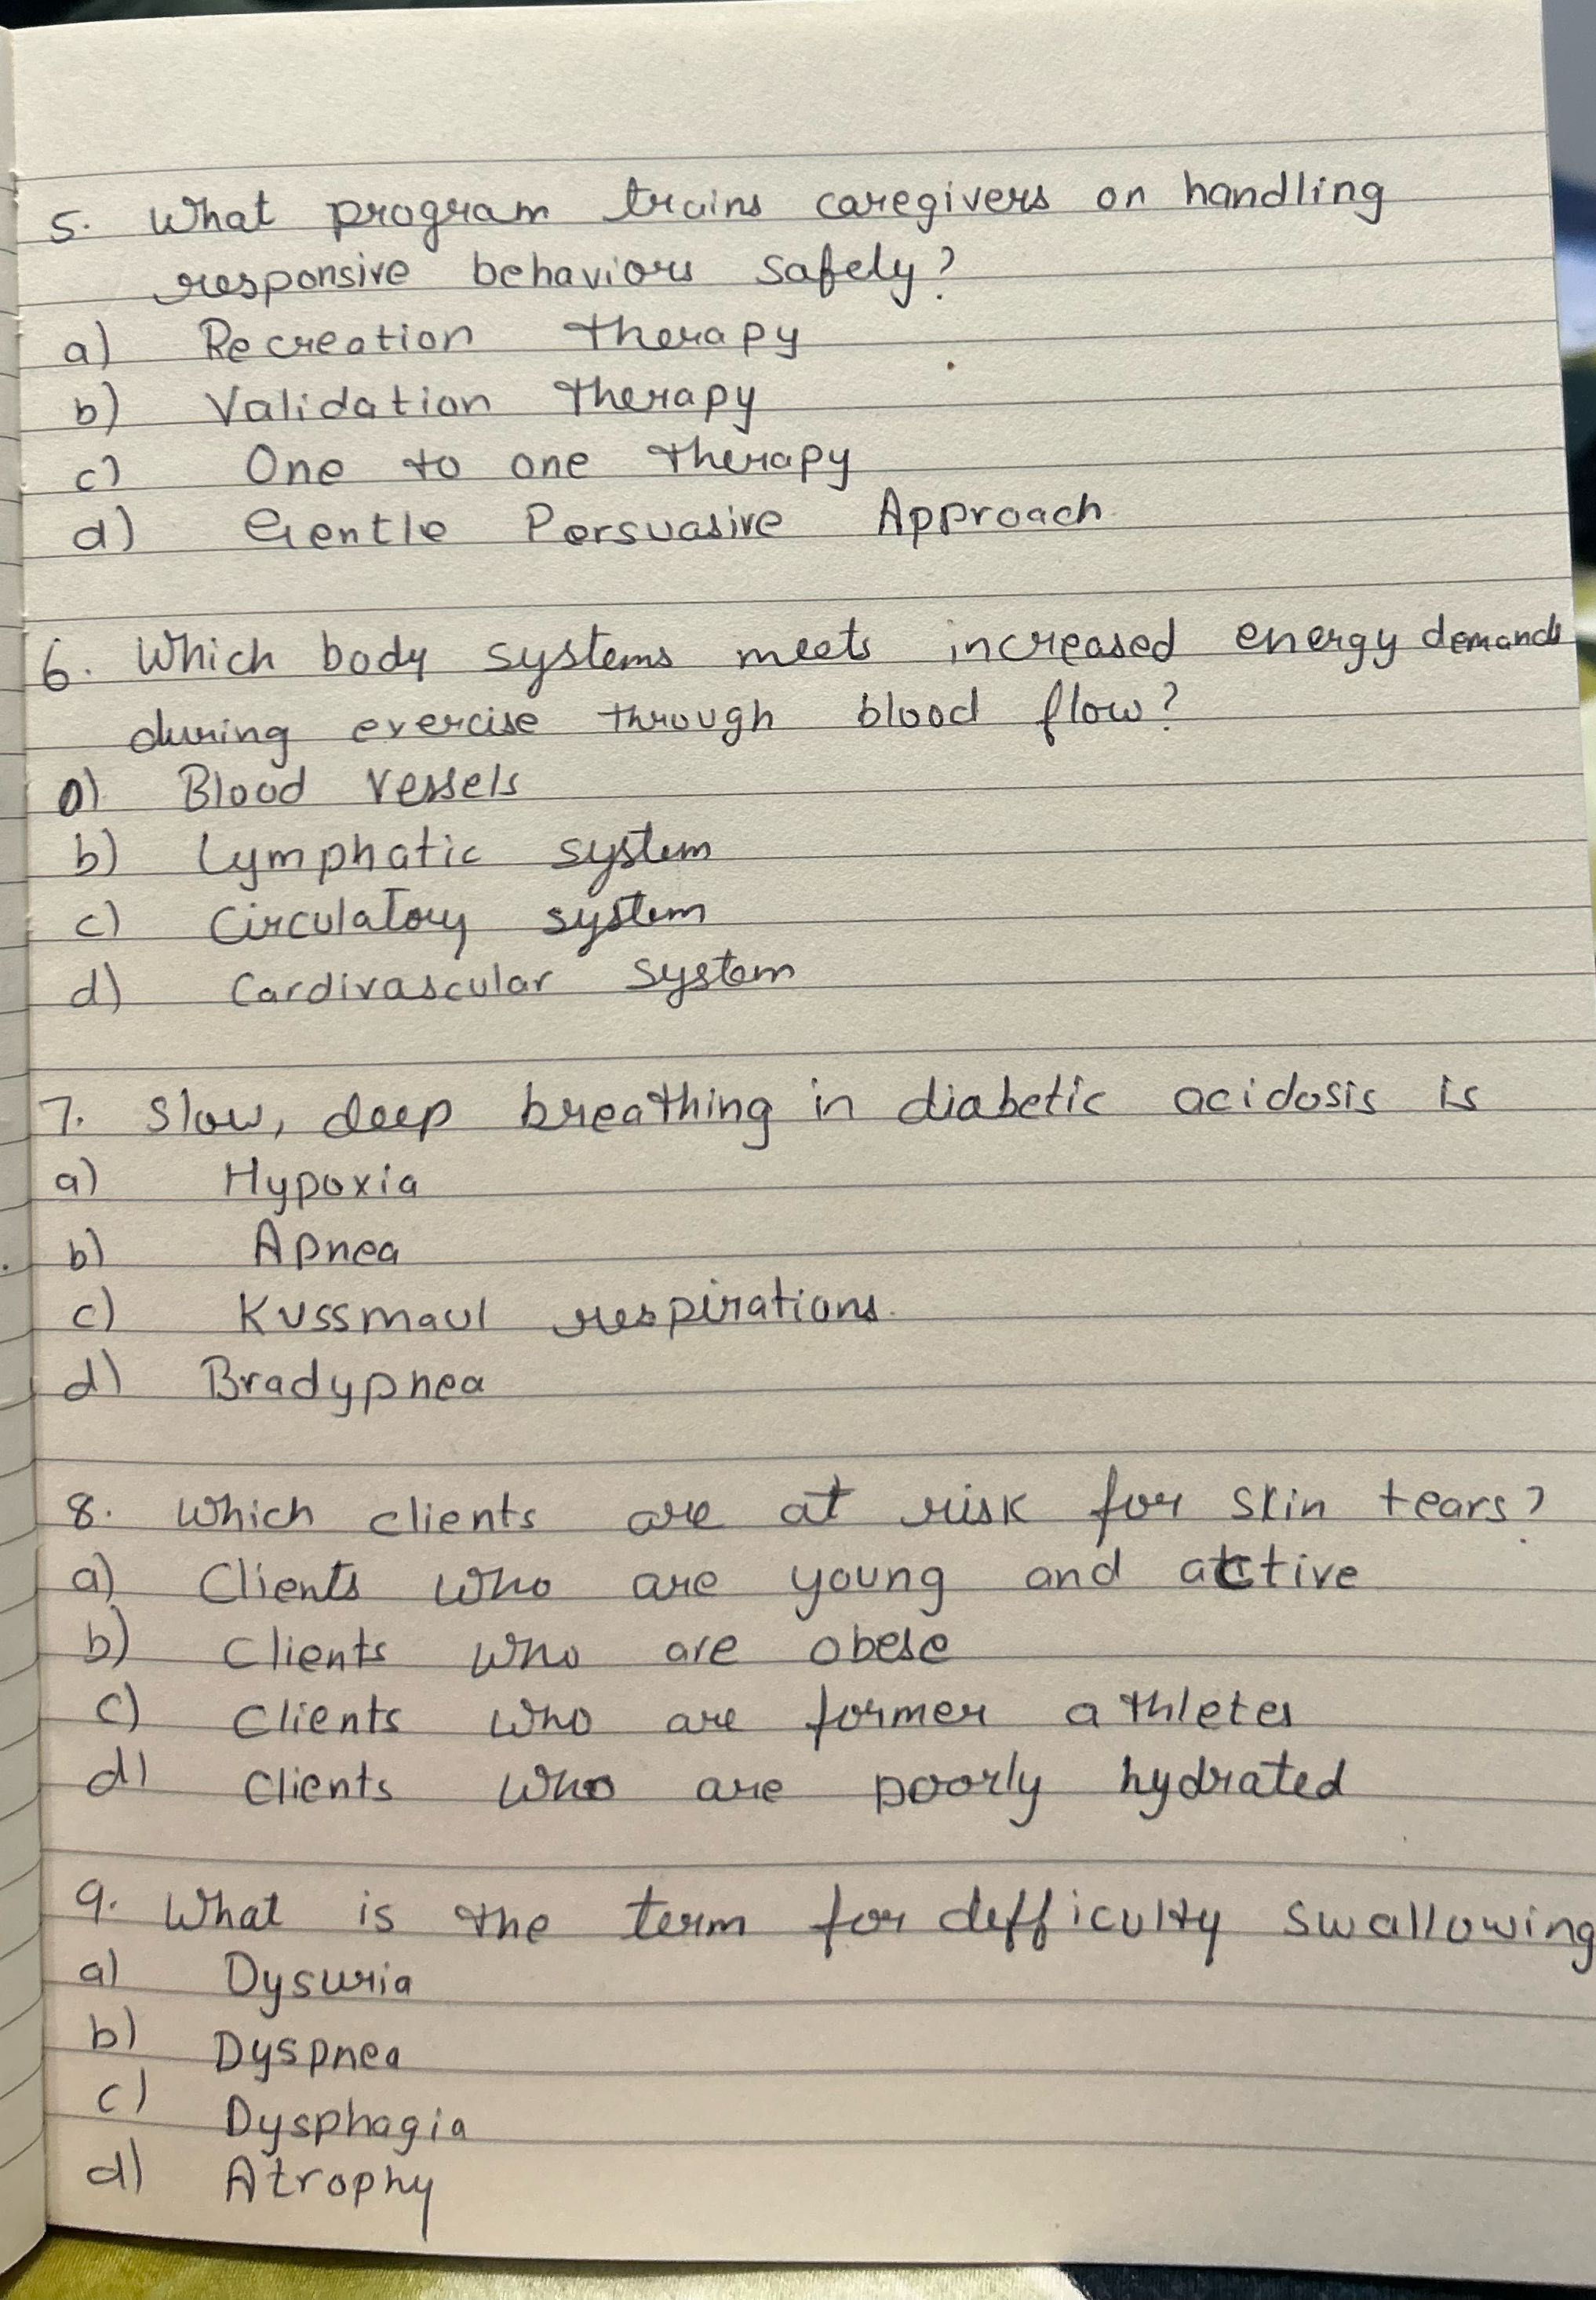 5. What program trains caregivers on handling
responsive behaviors safely?
a) Recreation therapy
b) Validation therapy
c) One to one therapy
d) Gentle Persuasive Approach
6. Which body systems meets increased energy demands
during exercise through blood flow?
a) Blood vessels
b) Lymphatic system
c) Circulatory system
d) Cardivascular system
7. Slow, deep breathing in diabetic acidosis is
a) Hypoxia
b) Apnea
c) Kussmaul respirations.
d) Bradypnea
8. Which clients are at risk for skin tears?
a) Clients who are young and active
b) Clients who are obese
c) Clients who are former athletes
d) Clients who are poorly hydrated
9. What is the term for defficulty swallowing
a) Dysuria
b) Dyspnea
c) Dysphagia
d) Atrophy